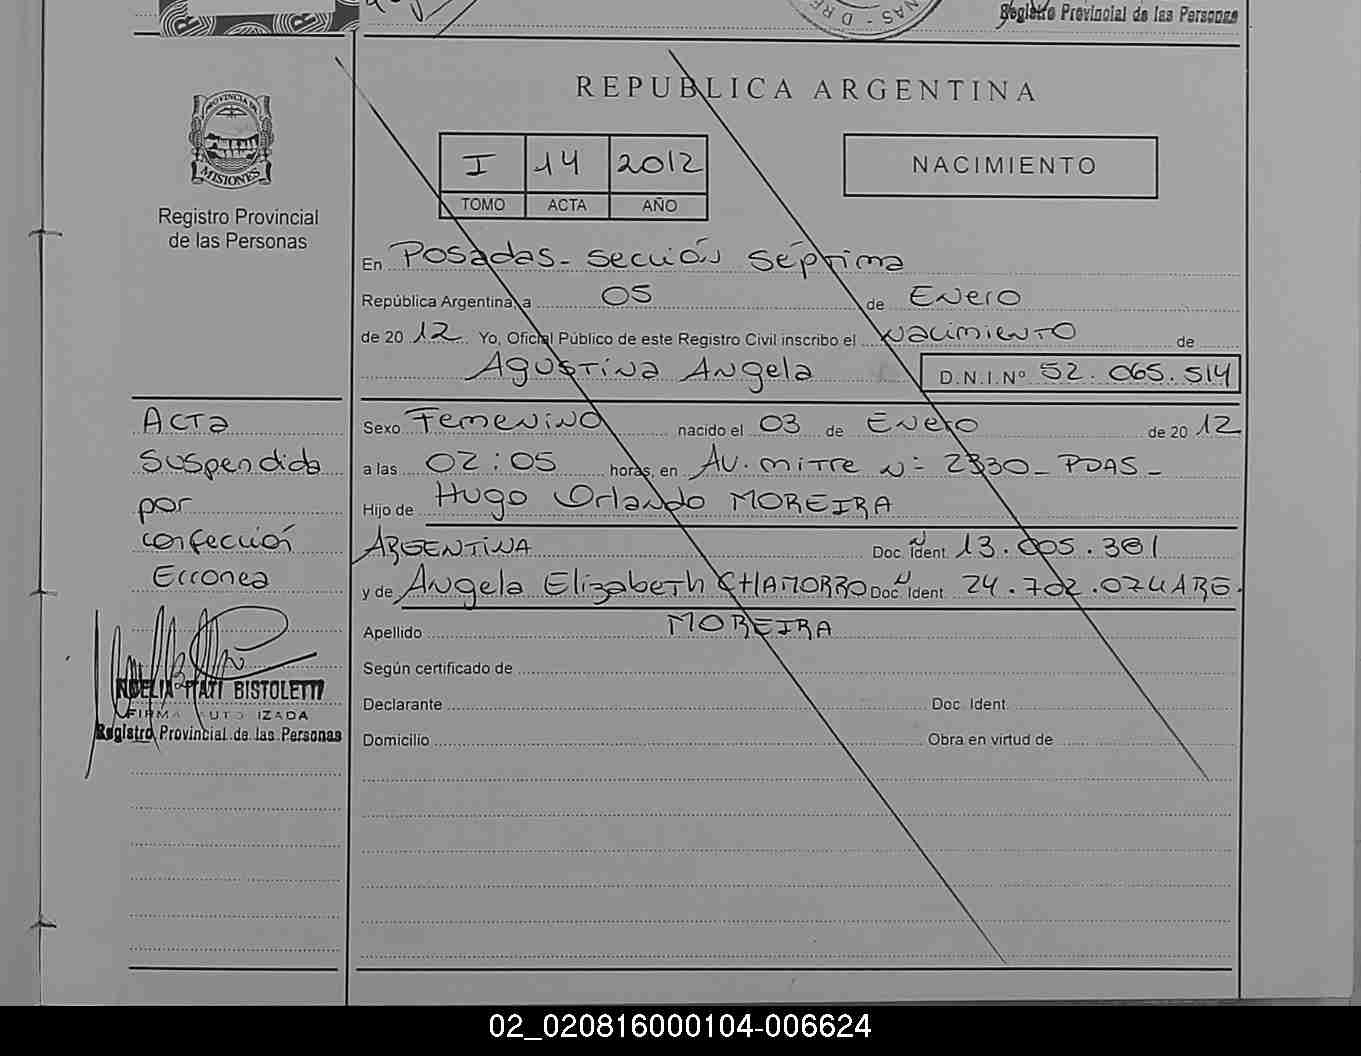 Registro Provincial de las Personas
REPUBLICA ARGENTINA
PROVINCIA DE
MISIONES
Registro Provincial
de las Personas
I 14 2012
TOMO ACTA AÑO
NACIMIENTO
En Posadas - Sección Séptima
República Argentina, a 05 de Enero
de 20 12 Yo, Oficial Público de este Registro Civil inscribo el Nacimiento de
Agustina Angela D.N.I.Nº 52.065.514
Sexo Femenino nacido el 03 de Enero de 20 12
a las 02:05 horas, en Av. mitre N= 2330 - PDAS -
Hijo de Hugo Orlando MOREIRA
ARGENTINA Doc. Ident. 13.005.381
y de Angela Elizabeth CHAMORRO Doc. Ident. 24.702.074 ARG.
Apellido MOREIRA
Según certificado de
Declarante Doc. Ident.
Domicilio Obra en virtud de
Acta
Suspendida
por
confección
Erronea
NOELIA ITATI BISTOLETTI
FIRMA AUTORIZADA
Registro Provincial de las Personas
02_020816000104-006624